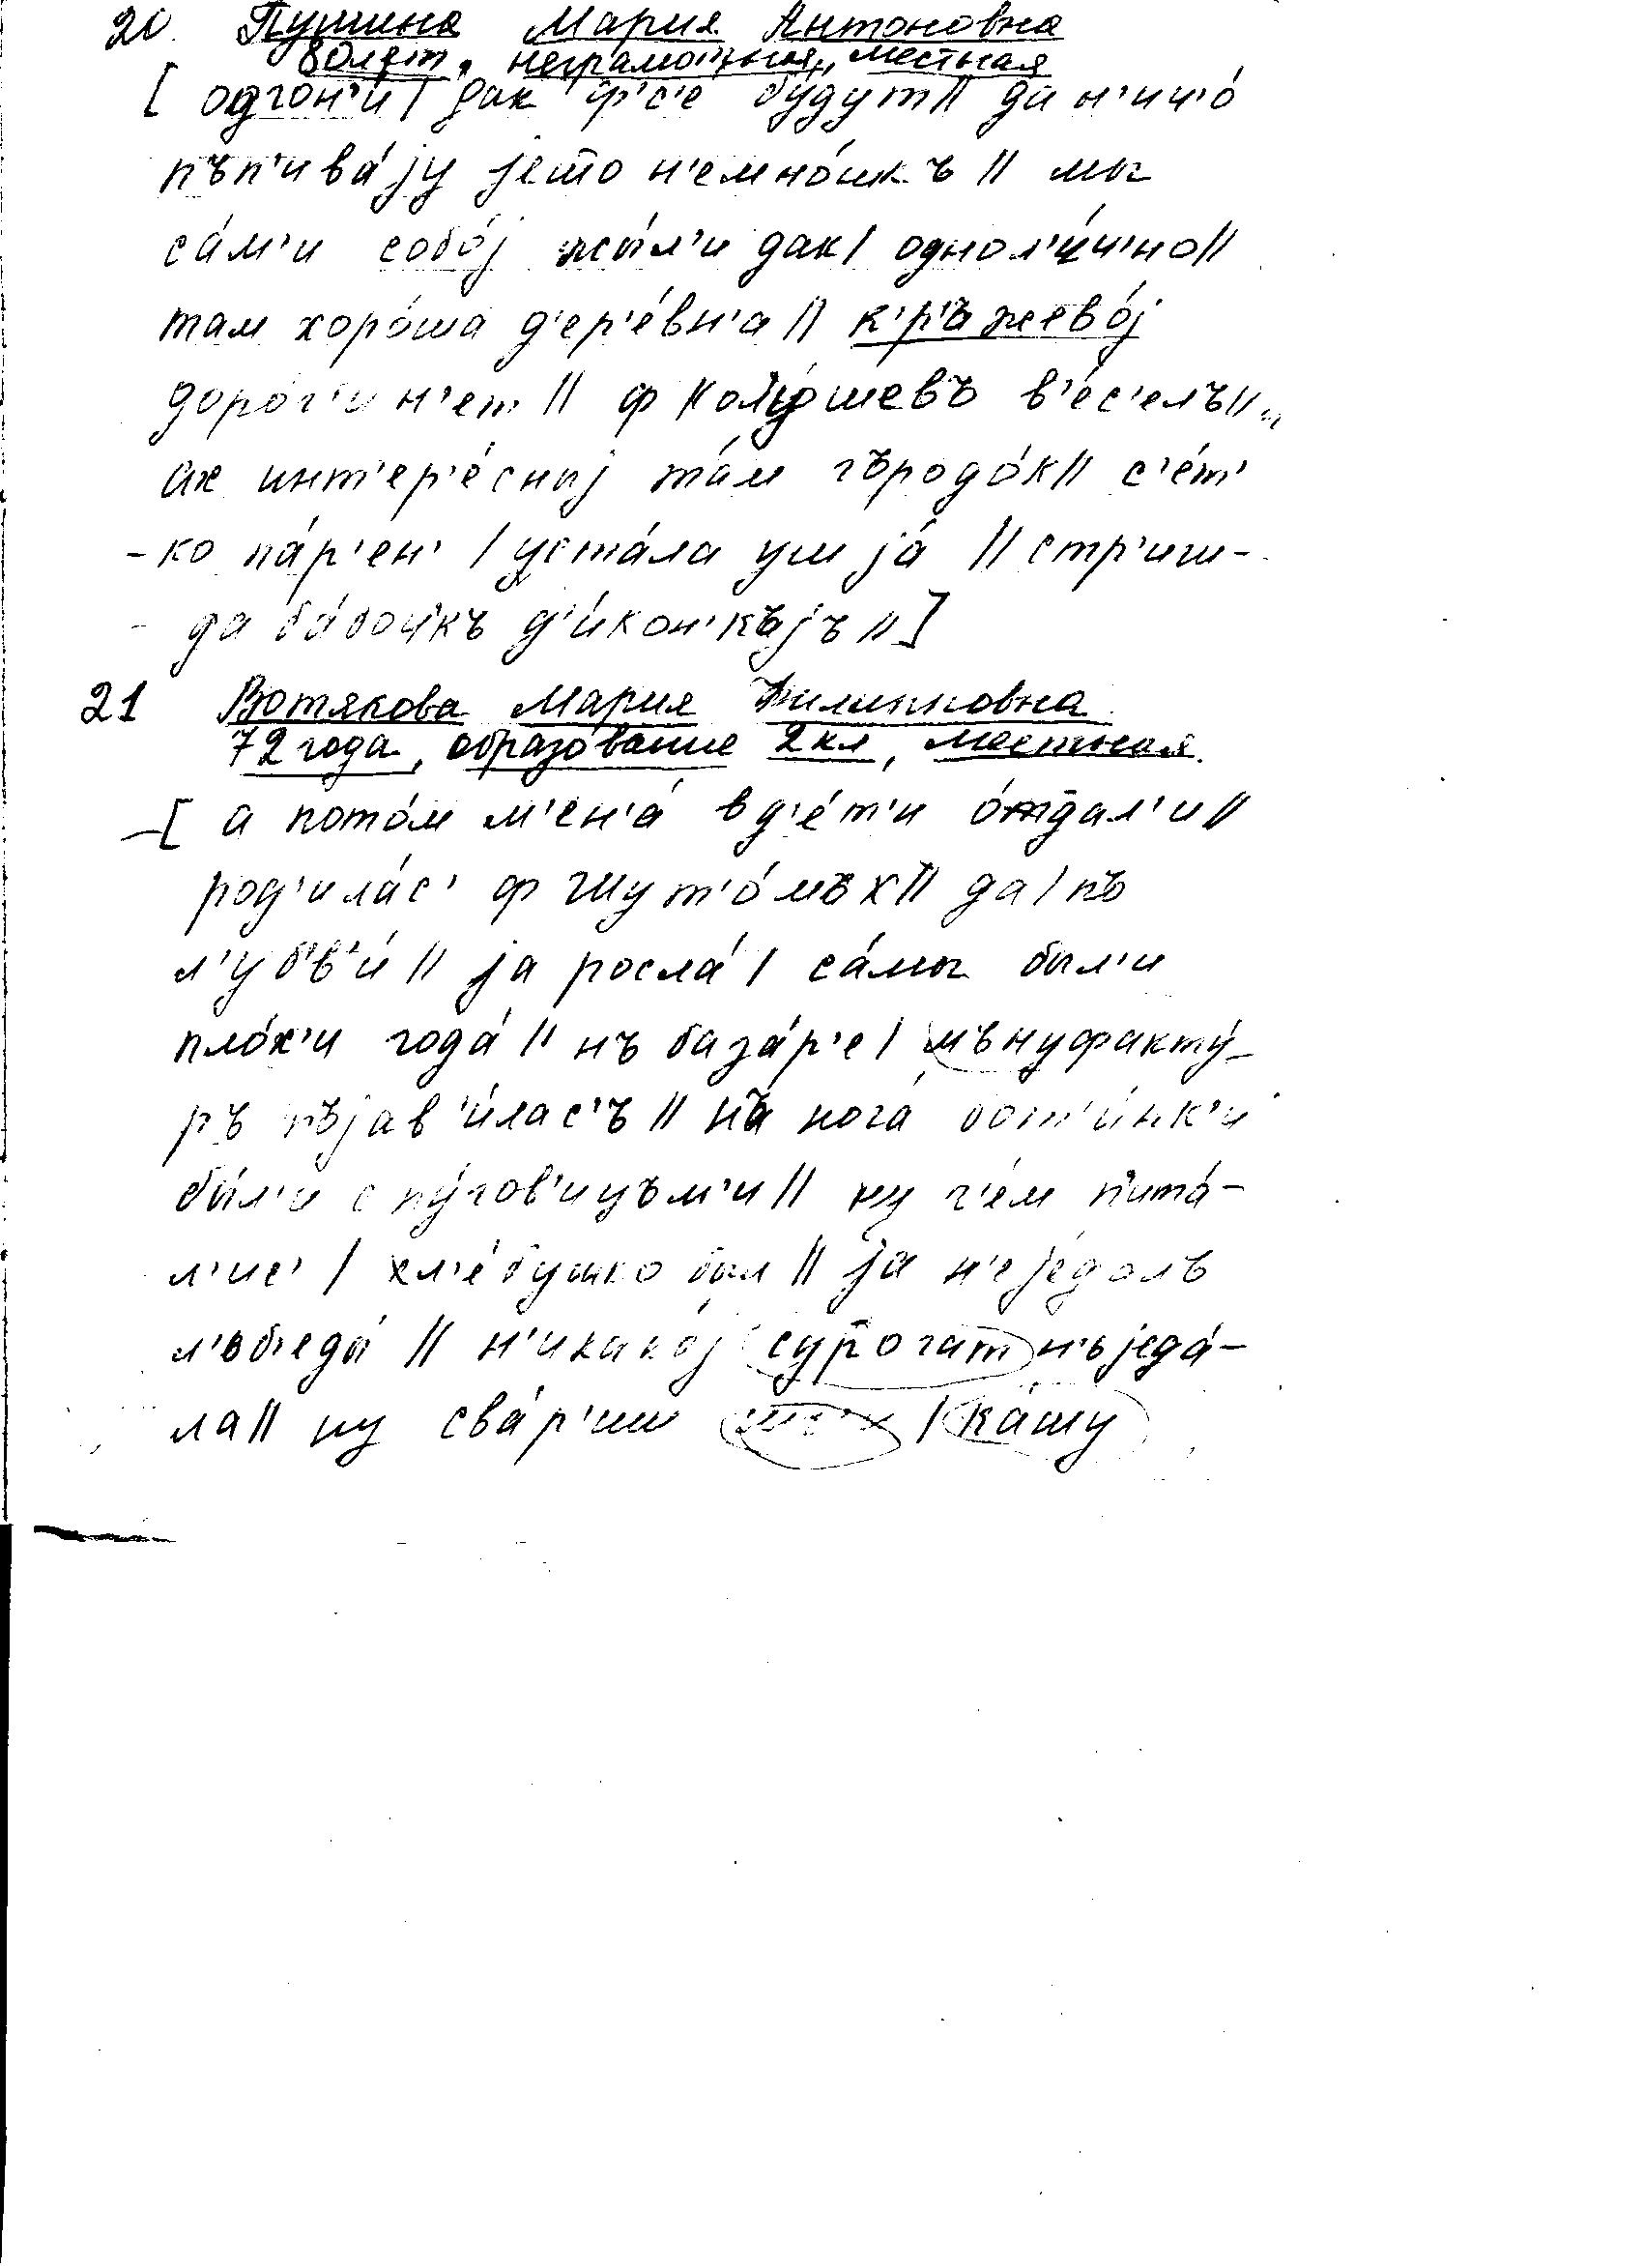 20. Пушина Мария Антоновна
80 лет, неграмотная, местная
[ одгон'и | дак ф'с'е будут || да н'ич'о́
пъп'ива́jу jето н'емно́шкъ || мы
са́м'и собо́j жы́л'и дак | однол'и́ч'но ||
там хоро́ша д'ер'е́вн'а || к'р'ъжево́j
доро́г'и н'ет || ф в'е́с'елъ ||
ах инт'ер'е́сныj та́м гъродо́к || с'е́т'
-ко па́р'ен' | уста́ла уш jа́ || стр'иш-
- да ба́бочкъ д'и́кон'къjъ || ]
21 Вотякова Мария Филипповна
72 года, образование 2 кл, местная.
[ а пото́м м'ен'а́ в д'е́т'и о́тдал'и ||
род'ила́с' ф Шут'о́мъх || да | пъ
л'убв'и́ || jа росла́ | са́мы был'и
пло́х'и года́ || нъ база́р'е | мънуфакту́-
ръ пъjав'и́лас'ъ || на нога́ бот'и́нк'и
бы́л'и с пу́гов'ицъм'и || ну ч'е́м пита́-
л'ис' | хл'е́бушко был || jа н'е jе́далъ
л'ъб'еда́ || н'икако́j сурогат н'ъ jеда́-
ла || ну сва́р'иш | ка́шу